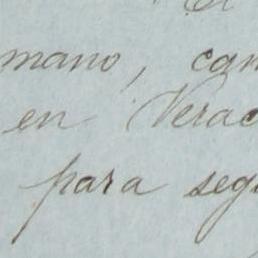 mano, cam
en Verac
para segu